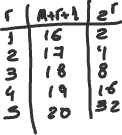 r n+r+1 2^r
1 16 2
2 17 4
3 18 8
4 19 16
5 20 32